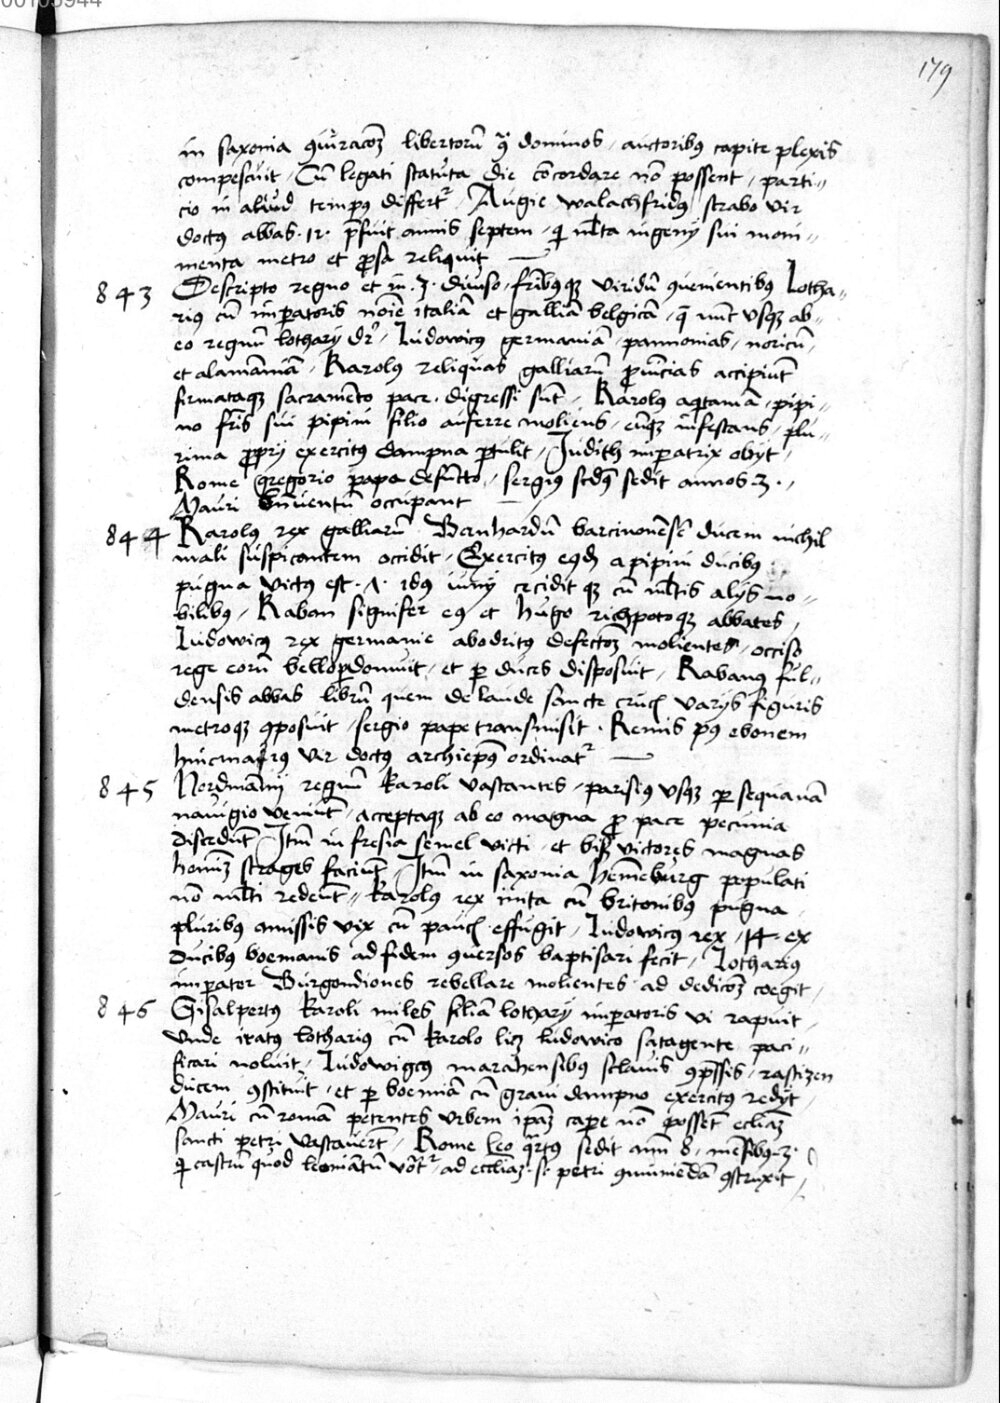 00103944
179
in saxonia 9uiracoꝫ libertorū ꝯ̃ dominos, auctoribꝰ capite plexis
compescuit, Cū legati statuta die cōcordare nō possent, parti=
cio in aliud tempꝰ differtr, Augie walachfridꝰ strabo vir
doctꝰ abbas .12. p̄fuit annis septem, qi mlta ingenÿ sui moni=
menta metro et prosa reliquit —
843 Descripto regno et in .3. diuiso, fribꝰqꝫ viridū 9uenientibꝰ Lotha=
riꝰ cū imꝑatoris noīe italiā et galliā belgicā, q̄ nūc vsqꝫ ab=
eo regnū lotharÿ dr, Ludowicꝰ germaniā, pannonias, noricū,
et alamāniā, Karolꝰ reliquas galliarū prouīcias accipiūt
firmataqꝫ sacramēto pace, digressi sūt, Karolꝰ aqitaniā, pipi=
no fris sui pipini filio auferre moliens, eūqꝫ īfestans, plu=
rima proprÿ exercitꝰ dampna ꝑtulit, Judith imꝑatrix obÿt,
Rome gregorio papa defūcto, sergiꝰ scdꝰ sedit annos .3.,
Mauri bn̄uentū occupant —
844 Karolꝰ rex galliarū Bernhardū barcinonēsē ducem nichil
mali suspicantem occidit, Exercitꝰ eꝰdē a pipini ducibꝰ
pugna victꝰ est .7. idꝰ iunÿ cecidit qꝫ cū mltis alÿs no=
bilibꝰ, Raban signifer eꝰ et Hugo richpotoqꝫ abbates,
Ludowicꝰ rex germanie abodritꝰ defectoꝫ molientes, occiso
rege eorū bello ꝑdomuit, et ꝑ duces disposuit, Rabanꝰ ful=
densis abbas librū quem de laude sancte crucꝭ varÿs figuris
metroqꝫ 9posuit, sergio pape transmisit. Remis pꝰ ebonem
hincmarꝰ vir doctꝰ archiepꝰ ordinatr —
845 Nordmāni regnū karoli vastantes, parisiꝰ vsqꝫ ꝑ sequanā
nauigio veniūt, acceptaqꝫ ab eo magna pro pace pecunia
discedūt, Itm in fresia semel victi, et bis victores magnas
hominꝫ strages faciūt, Itm in saxonia hēmēburg populati
nō mlti redeūt, karolꝰ rex inita cū britonibꝰ pugna,
pluribꝰ amissis vix cū paucꝭ effugit, Ludowicꝰ rex, 14. ex
ducibꝰ boemanis ad fidem 9uersos baptisari fecit, Lothariꝰ
imꝑator Burgondiones rebellare molientes ad dedicoꝫ coegit,
846 Gisalpertꝰ karoli miles filiā lotharÿ imꝑatoris vi rapuit,
vnde iratꝰ lothariꝰ cū karolo licꝫ ludowico satagente paci=
ficari noluit, Ludowigꝰ marahensibꝰ sclauis 9pssis, rastizen
ducem 9stituit, et ꝑ boemiā cū graui dampno exercitꝰ redÿt,
Mauri cū romā petentes vrbem ipaꝫ capere nō possēt ecliaꝫ
sancti petri vastauerūt, Rome Leo qrtꝰ sedit ann 8, mēsibꝰ .3.
qi castrū quod leonianū votr, ad eccliaꝫ sc petri 9muniēdā 9struxit,